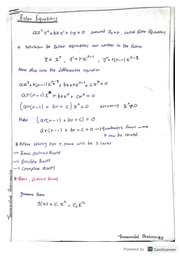 Euler Equations
ax²y'' + bxy' + cy = 0 around x₀=0, called Euler Equations
A solution to Euler equations can written in the form
y = x^r, y' = rx^(r-1), y'' = r(r-1)x^(r-2)
Now plug into the differential equation
ax² r(r-1)x^(r-2) + bx rx^(r-1) + cx^r = 0
ar(r-1)x^r + brx^r + cx^r = 0
(ar(r-1) + br + c)x^r = 0 assuming x^r ≠ 0
(ar(r-1) + br + c) = 0
ar(r-1) + br + c = 0
After solving for r, there will be 3 cases
→ Real, Distinct Roots
→ Double Roots
→ Complex Roots
Real, Distinct Roots
General Soln
y(x) = c₁x^r₁ + c₂x^r₂
Powered by CamScanner